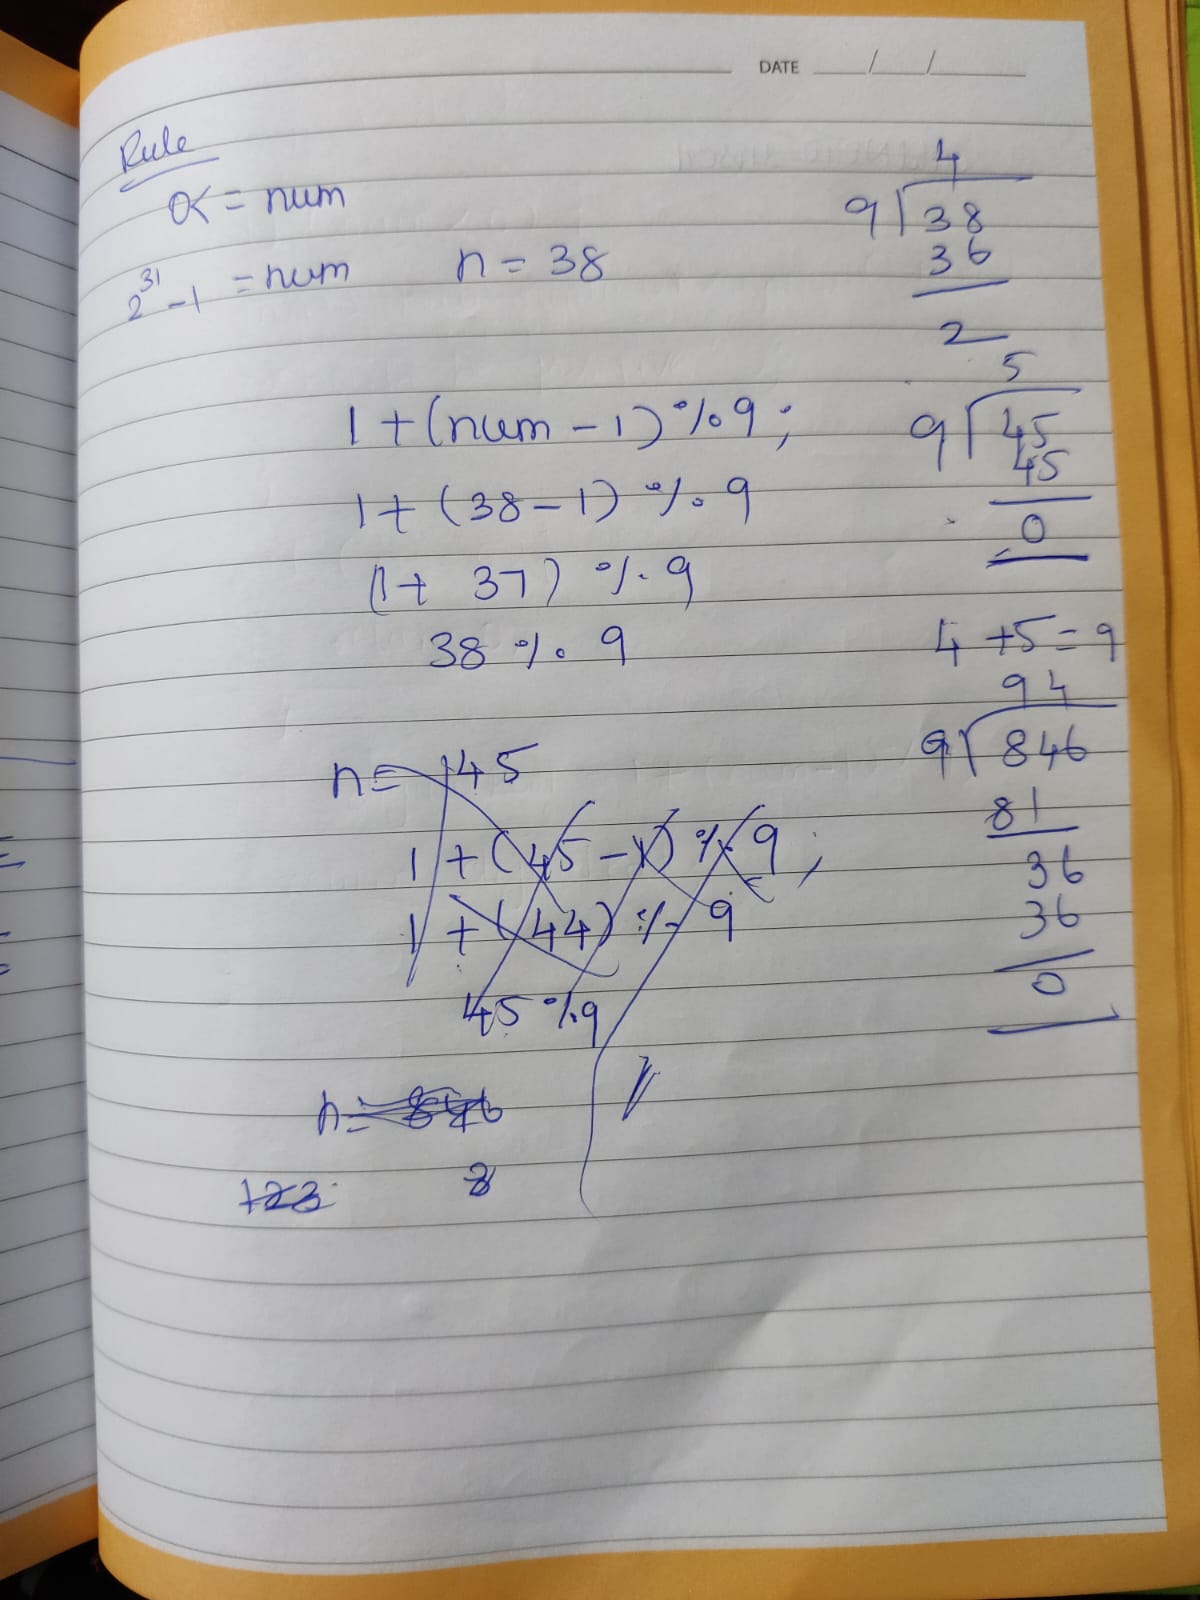 DATE / /
Rule
0< = num
2^31 - 1 = num
n = 38
1 + (num - 1) % 9 ;
1 + (38 - 1) % 9
(1 + 37) % 9
38 % 9
n = 45
1 + (45 - 1) % 9 ;
1 + (44) % 9
45 % 9
n = 846
123
4
9 38
36
2
5
9 45
45
0
4 + 5 = 9
94
9 846
81
36
36
0